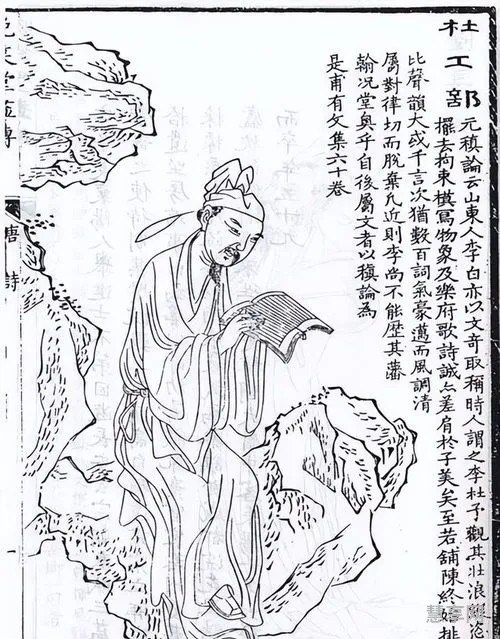 杜工部
元稹論云山東人李白亦以文奇取稱時人謂之李杜予觀其壮浪
擺去拘束模寫物象及樂府歌詩誠亦差肩於子美矣至若舖陳終始排
比聲韻大或千言次猶數百詞氣豪邁而風調清
屬對律切而脫棄凡近則李尚不能歷其藩
翰况堂奧乎自後屬文者以稹論為
是甫有文集六十卷
笑堂畫傳
唐